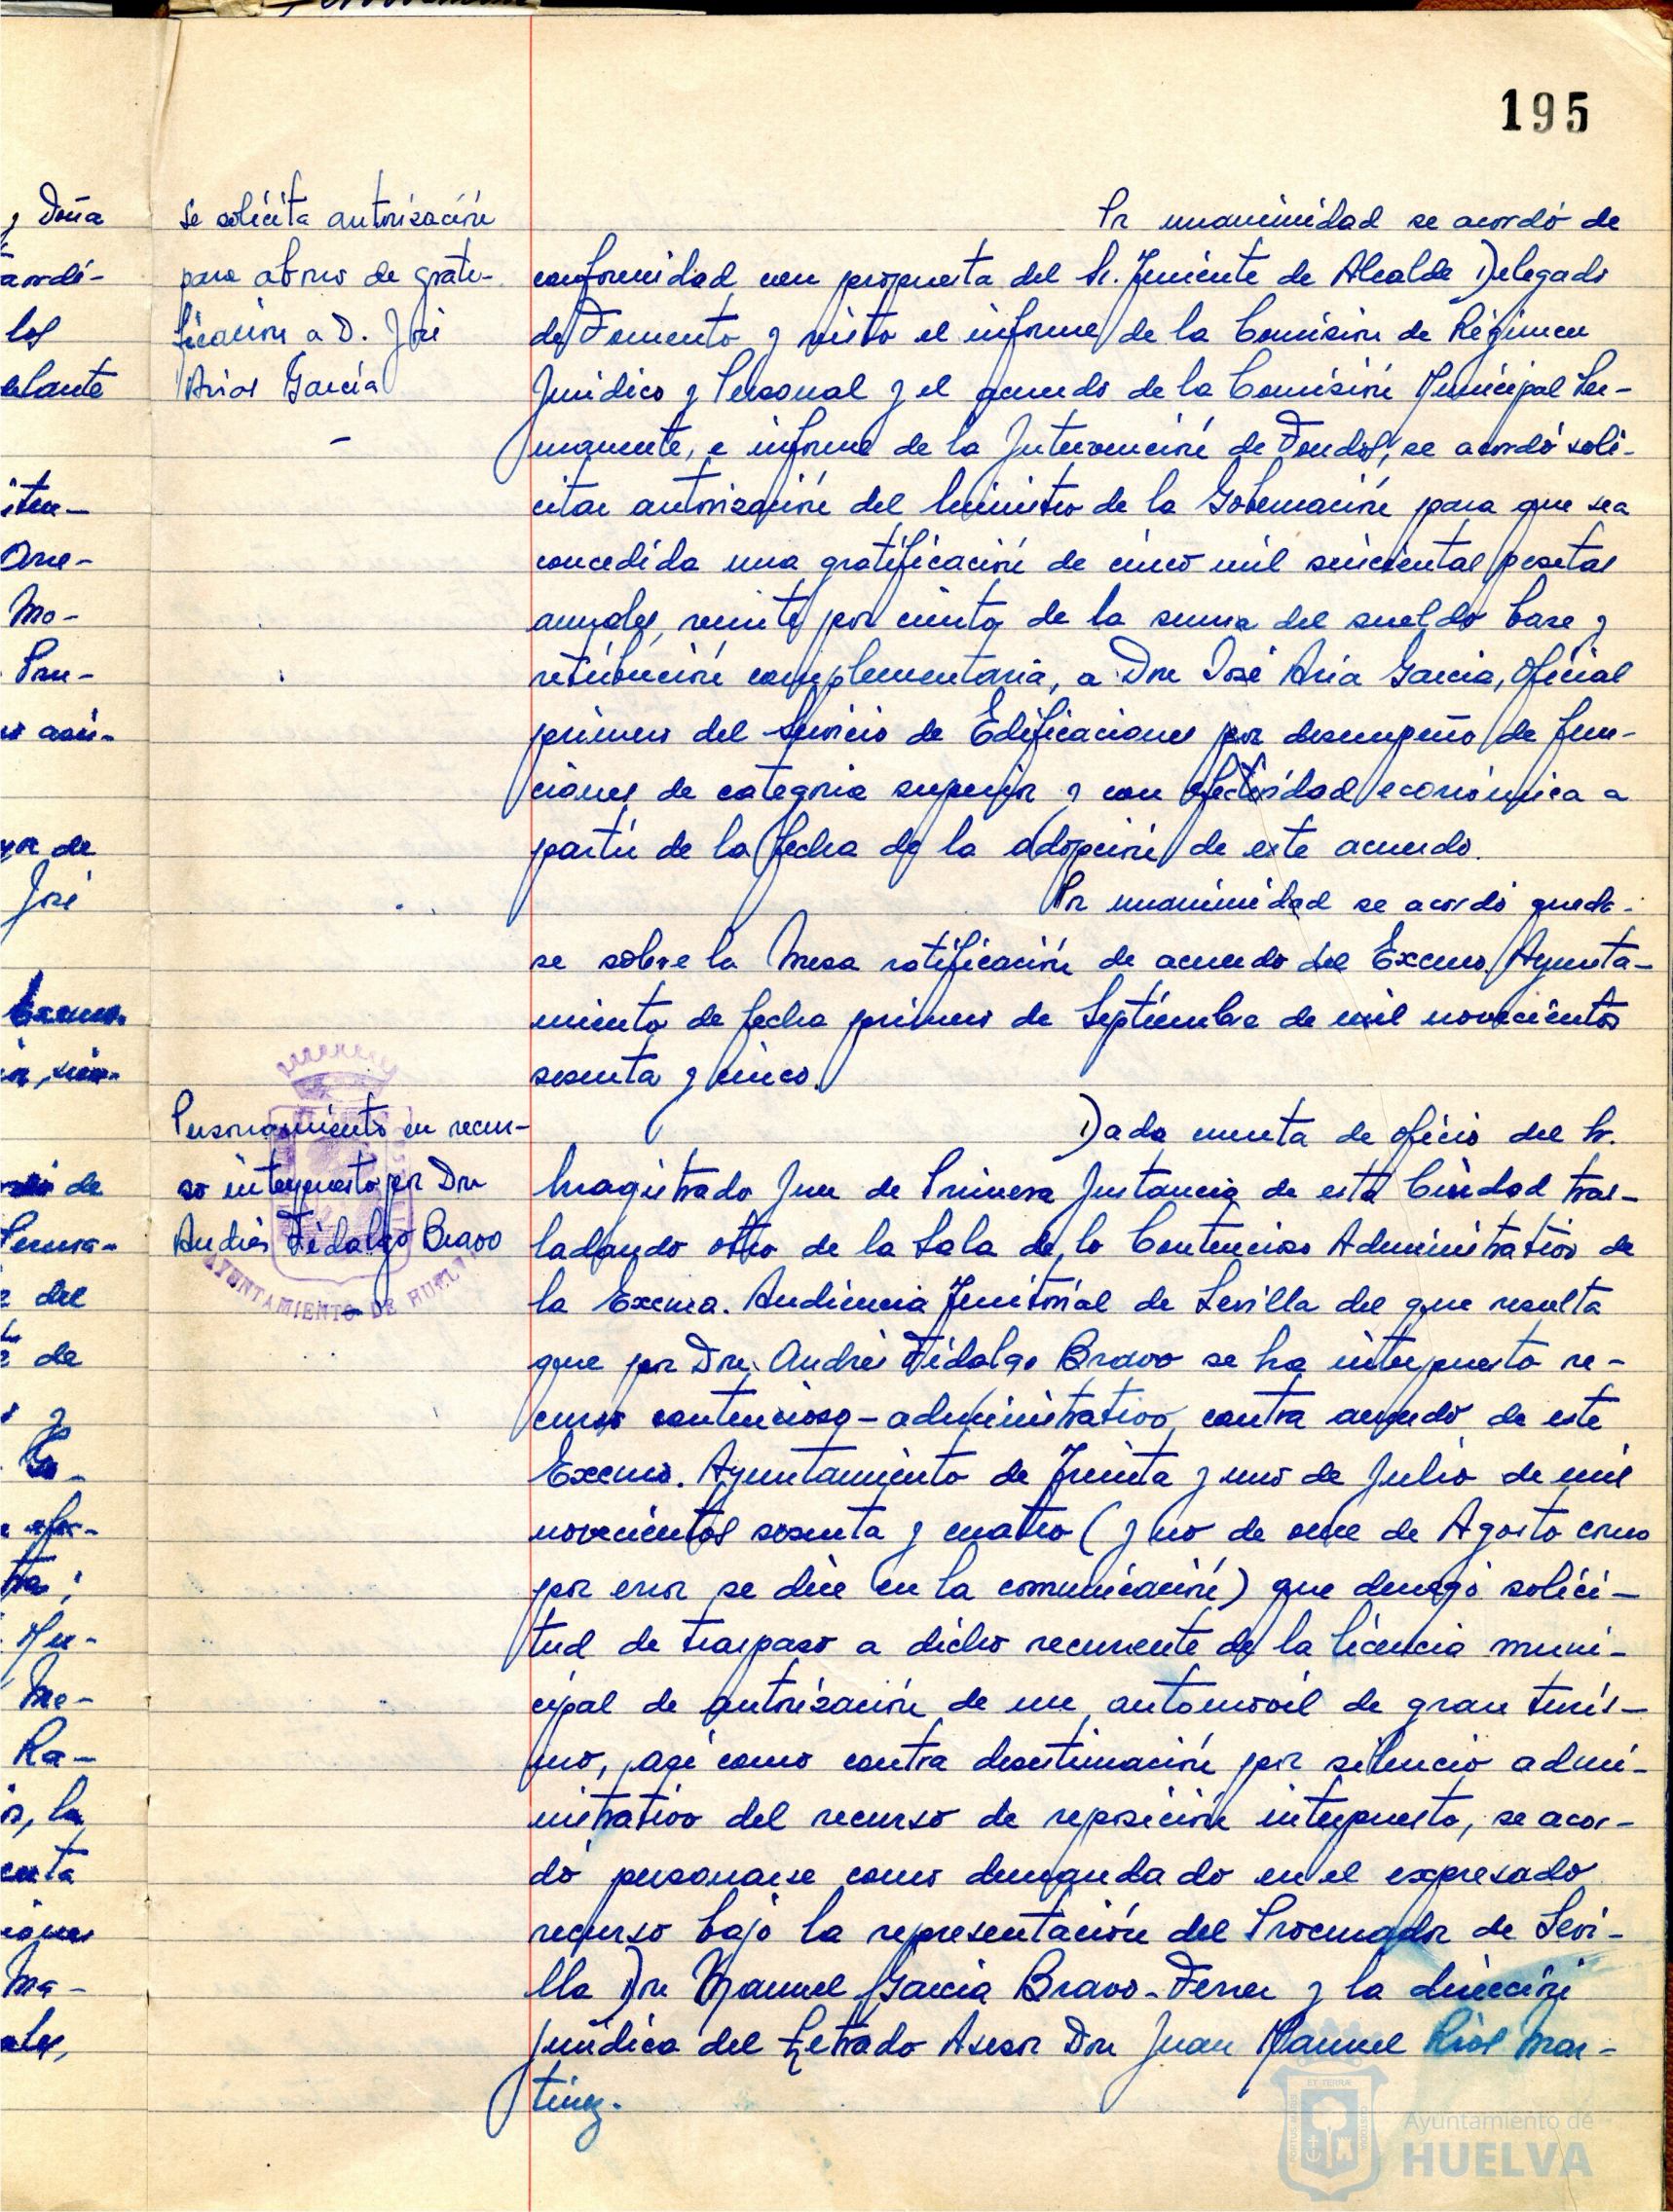 195
Se solicita autorización
para abono de grati-
ficación a D. José
Arias García
-
Por unanimidad se acordó de
conformidad con propuesta del Sr. Teniente de Alcalde Delegado
de Fomento y visto el informe de la Comisión de Régimen
Jurídico y Personal y el acuerdo de la Comisión Municipal Per-
manente, e informe de la Intervención de Fondos, se acordó soli-
citar autorización del Ministro de la Gobernación para que sea
concedida una gratificación de cinco mil seiscientas pesetas
anuales, veinte por ciento de la suma del sueldo base y
retribución complementaria, a Don José Aria García, Oficial
primero del Servicio de Edificaciones por desempeño de fun-
ciones de categoría superior y con efectividad económica a
partir de la fecha de la adopción de este acuerdo.
Por unanimidad se acordó queda-
se sobre la Mesa ratificación de acuerdo del Excmo. Ayunta-
miento de fecha primero de Septiembre de mil novecientos
sesenta y cinco.
Personamiento en recur-
so interpuesto por Don
Andrés Fidalgo Bravo
AYUNTAMIENTO DE HUELVA
Dada cuenta de oficio del Sr.
Magistrado Juez de Primera Instancia de esta Ciudad tras-
ladando otro de la Sala de lo Contencioso Administrativo de
la Excma. Audiencia Territorial de Sevilla del que resulta
que por Don Andrés Fidalgo Bravo se ha interpuesto re-
curso contencioso-administrativo, contra acuerdo de este
Excmo. Ayuntamiento de Treinta y uno de Julio de mil
novecientos sesenta y cuatro (y no de once de Agosto como
por error se dice en la comunicación) que denegó solici-
tud de traspaso a dicho recurrente de la licencia muni-
cipal de autorización de un automóvil de gran turis-
mo, así como contra desestimación por silencio admi-
nistrativo del recurso de reposición interpuesto, se acor-
dó personarse como demandado en el expresado
recurso bajo la representación del Procurador de Sevi-
lla Don Manuel García Bravo-Ferrer y la dirección
jurídica del Letrado Asesor Don Juan Manuel Ríos Mar-
tínez.
Ayuntamiento de
HUELVA